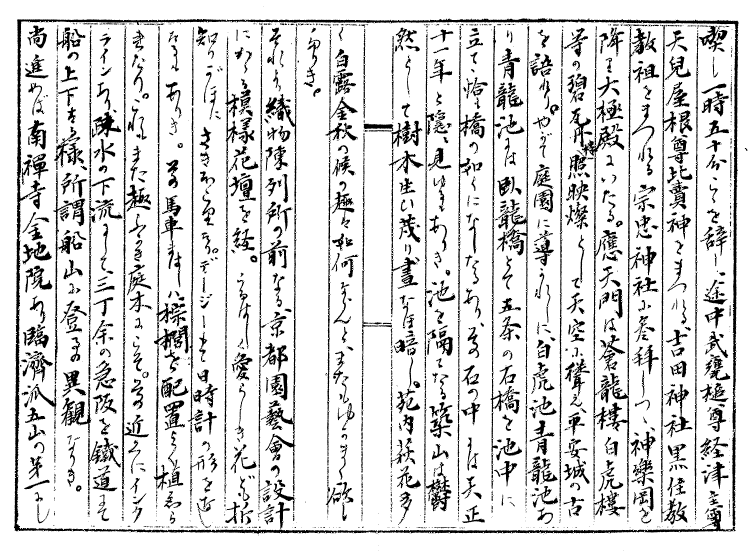 喫し一時五十分こゝを辞し、途中武甕槌尊経津主尊
天児屋根尊比賣神をまつれる吉田神社黒住教
教祖をまつれる宗忠神社に参拝しつゝ神樂岡を
降り大極殿にいたる。應天門は蒼龍樓白虎樓
等の碧瓦丹楹照映燦として天空に聳え平安城の古
を語れり。やがて庭園に導かれしに、白虎池青龍池あ
り青龍池には臥龍橋とて五条の石橋を池中に
立て恰も橋の如くになしたるあり、その石の中には天正
十一年と隠見ゆるもありき。池を隔てたる築山は欝
然として樹木生い茂り晝なほ暗し。苑内萩花多
く白露金秋の候の極々如何ならんとまたもゆかまく欲し
かりき。
それより織物陳列所の前なる京都園藝會の設計
にかゝる模様花壇を
知りがほにさきほこり デージーもて日時計の形を
もありき。その馬車まはしには棕櫚を配置よく植ゑら
庭木 その近くにインク
ラインあり疎水の下流にして三丁余の急阪を鐵道にて
船の上下する様、所謂船山に登るの異観なりき。
尚進めば南禅寺金地院あり臨濟派五山の第一にし